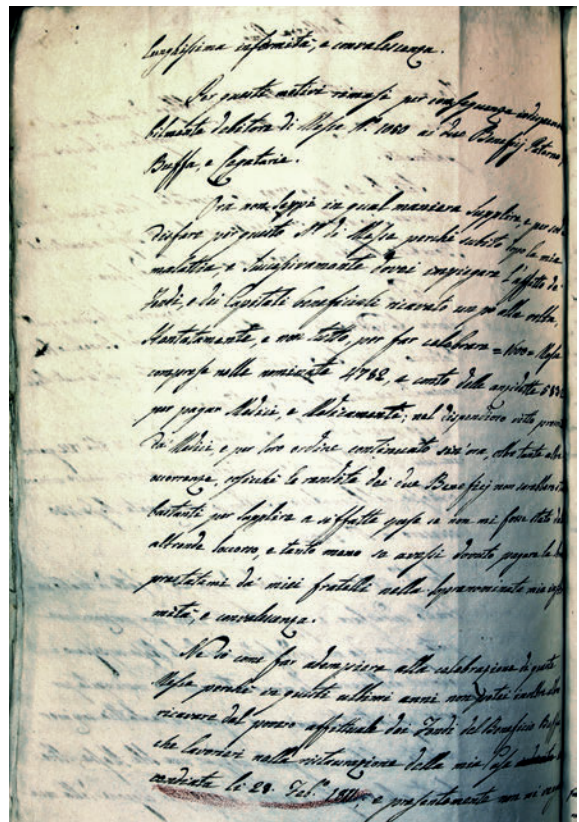 lunghissima infermità, e convalescenza.
Per questi motivi rimasi per conseguenza indispensa
bilmente debitore di Messe N.º 1050 ai due Beneficj Paterno,
Buffa, e
Ora non seppi in qual maniera supplire, e per
disfare per questo N.º di Messe perché subito dopo la mia
malattia, e successivamente dovei impiegare l'affitto de'
Fondi, e dei Capitali beneficiali ricavato un po alla volta,
stentatamente, e non tutto, per far celebrare = 1600 = Messe
comprese nelle nominate 4782, a conto delle anzidette
per pagar Medici, e Medicamenti; nel dispendioso vitto
dai Medici, e per loro ordine continuato sin'ora, oltre tante altre
occorrenze, osicché le rendite dei due Beneficj non sarebbero
bastanti per supplire a siffatte spese se non mi fosse stato
altronde soccorso, e tanto meno se avessi dovuto pagare la
prestatami da' miei fratelli nella sopranominata mia
mità, e convalescenza.
Ne so come far adempiere alla celebrazione di queste
Messe perché in questi ultimi anni non potei
ricavare dal povero affittuale dei Fondi del Beneficio Buffa
che lavorieri nella ristaurazione della mia Casa
incendiata li 28. Feb.º 1811; e presentemente non mi